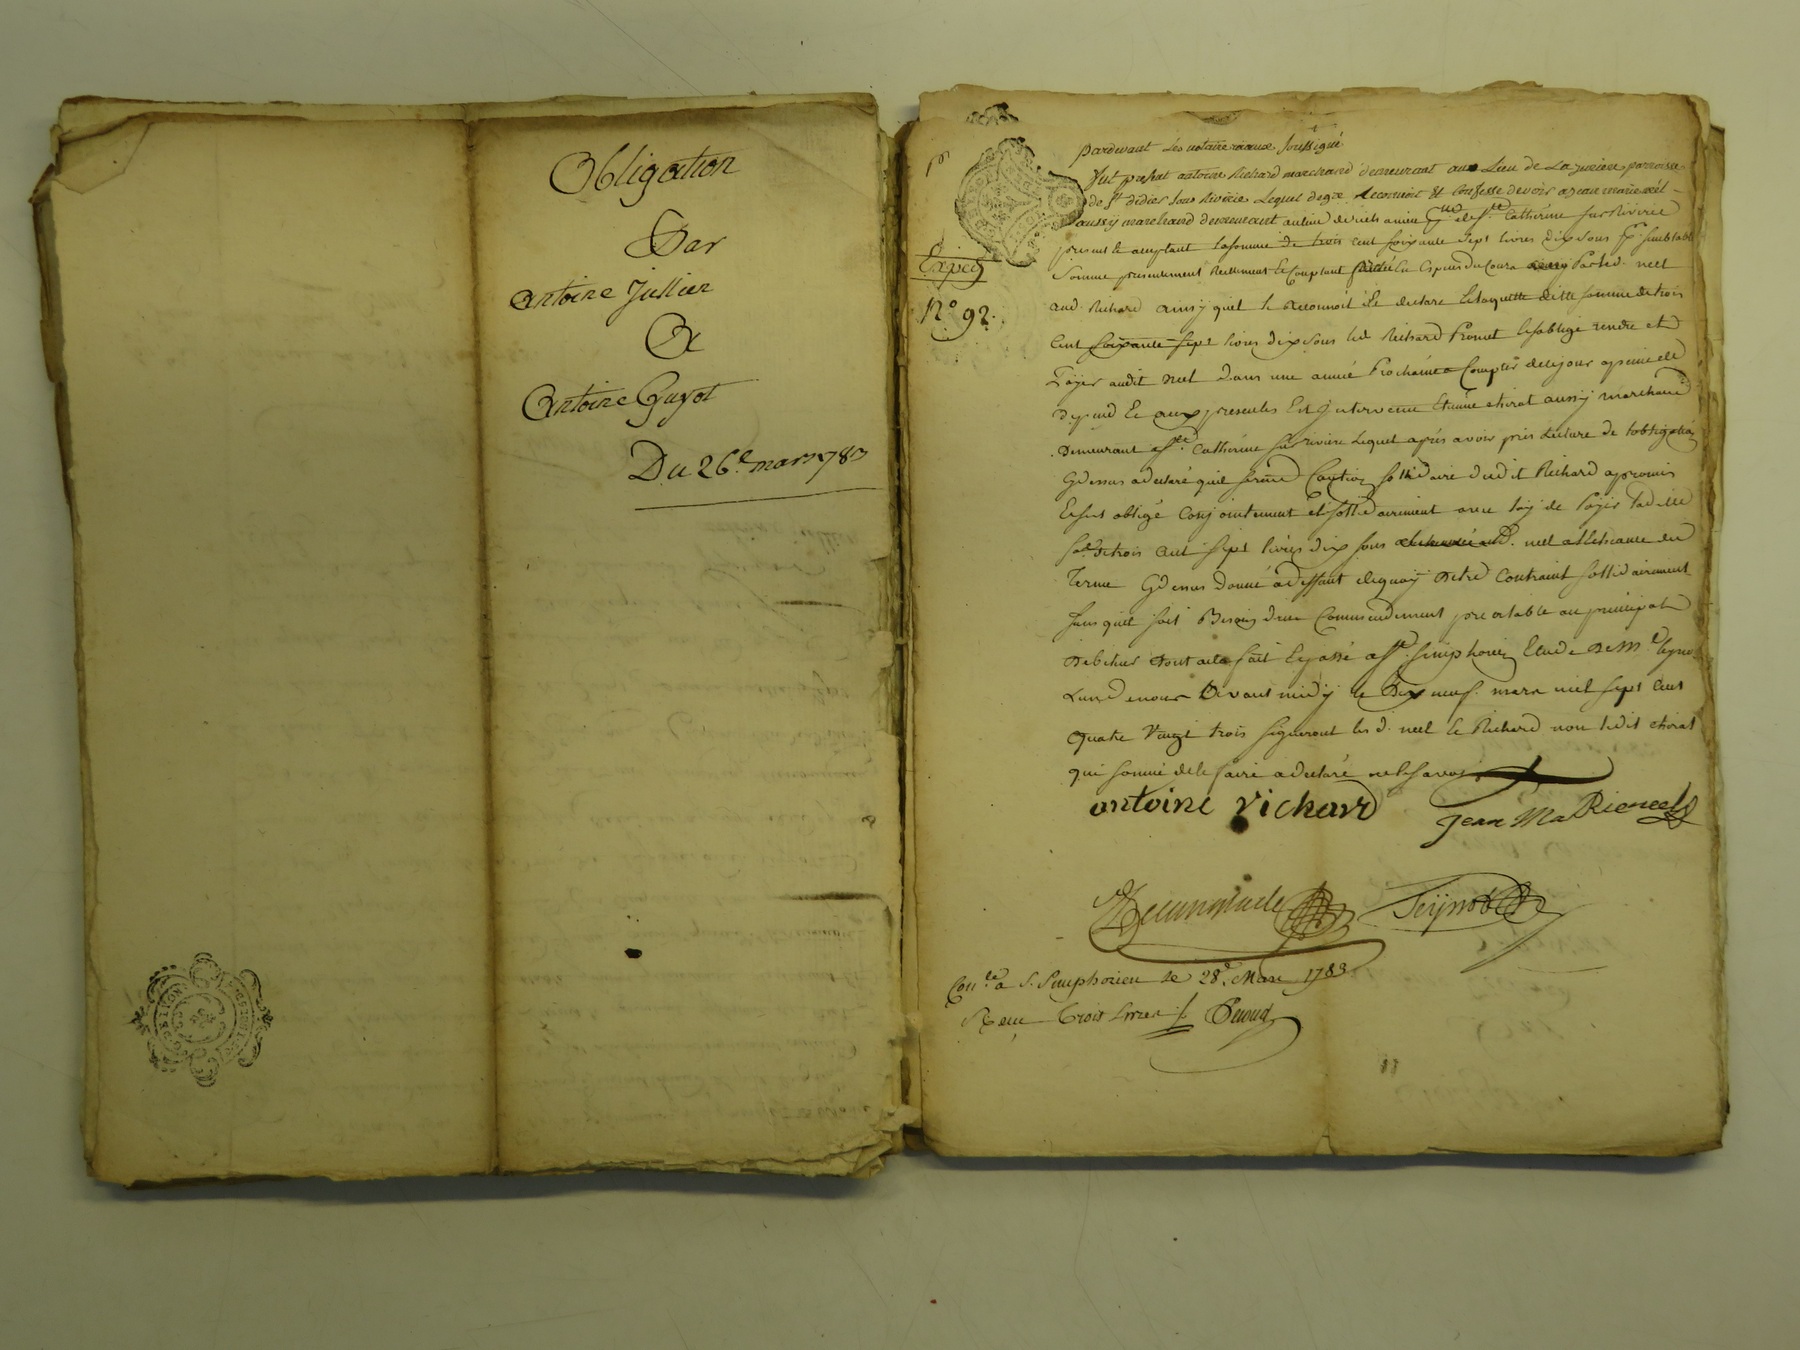 Obligation
Par
antoine Jullien
A
antoine Guyot
Du 26.e mars 1783
pardevant Les notaire roiaux soussigné
fut present antoine Richard marchand demeurant au Lieu de La parroisse
de st didier sous Rivirie Lequel degre Reconnoit Et Confesse devoir a jean marie néel
aussy marchand demeurant de ste Catherine sur Riviriee
present le acceptant la somme de trois cent soixante sept livres dix sous pr semblable
Somme presentement Reellement Et Comptant Especes du Cours par led. neel
Exped
N.o 92.
aud. Richard ainsy quil le Reconnoit Et declare Et laquelle ditte somme de trois
Cent soixante sept livres dix sous led Richard Promet Et soblige rendre et
Payer audit neel dans une année Prochaine a Compter de ce jour a peine de
depend Et aux presentes Est Intervenu Etienne chirat aussy marchand
Demeurant a ste. Catherine sur riviere Lequel après avoir pris Lecture de lobligation
Cydessus a declaré quil se rend Caution sollidaire dudit Richard a promis
Et sest obligé Conjointement et sollidairement avec luy de Payer la ditte
so.e de trois cent sept livres dix sous d. neel a lecheance du
Terme Cydessus donné a deffaut dequoy Detre Contraint sollidairement
sans quil soit Besoin d'un Commendement prealable au principal
Debiteur Dont acte fait Et passé a st. simphorien Etude De Me
Lun d nous avant midy le Dix neuf mars mil sept Cent
quatre Vingt trois signeront les d. neel Et Richard non ledit chirat
qui sommé de le faire a declaré ne le savoir
antoine richard
Jean Ma Rie neel
Con.lé a S. Simphorien le 28.e Mars 1783
Reçu Trois Livres